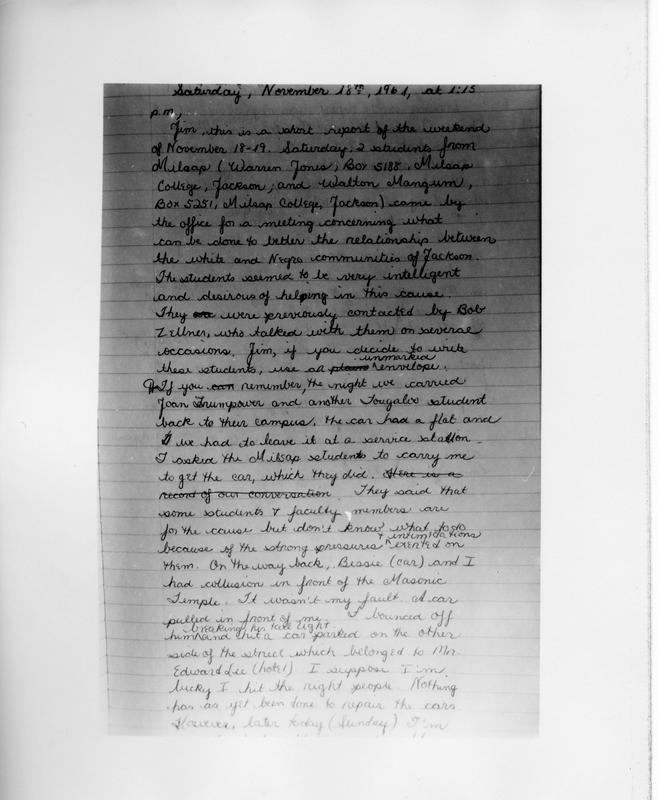 Saturday, November 18th, 1961, at 1:15
p.m,
Jim, this is a short report of the weekend
of November 18-19. Saturday, 2 students from
Milsap (Warren Jones; Box 5188, Milsap
College, Jackson; and Walton Mangum,
Box 5251, Milsap College, Jackson) came by
the office for a meeting concerning what
can be done to better the relationship between
the white and Negro communities of Jackson.
The students seemed to be very intelligent
and desirous of helping in this cause.
They were previously contacted by Bob
Zellner, who talked with them on severse
occasions. Jim, if you decide to write
unmarked
these students, use an plain envelope.
If you can remember, the night we carried
Joan Trumpower and another Tougaloo student
back to their campus, the car had a flat and
I we had to leave it at a service station.
I asked the Milsap students to carry me
to get the car, which they did. Here is a
record of our conversation. They said that
some students & faculty members are
for the cause but don't know what to do
& intimidations
because of the strong pressures exerted on
them. On the way back, Bessie (car) and I
had collusion in front of the Masonic
Temple. It wasn't my fault. A car
pulled in front of me. I bounced off
breaking his tail light
him and hit a car parked on the other
side of the street which belonged to Mr.
Edward Lee (hotel). I suppose I'm
lucky I hit the right people. Nothing
has as yet been done to repair the cars.
However, later today (Sunday) I'm